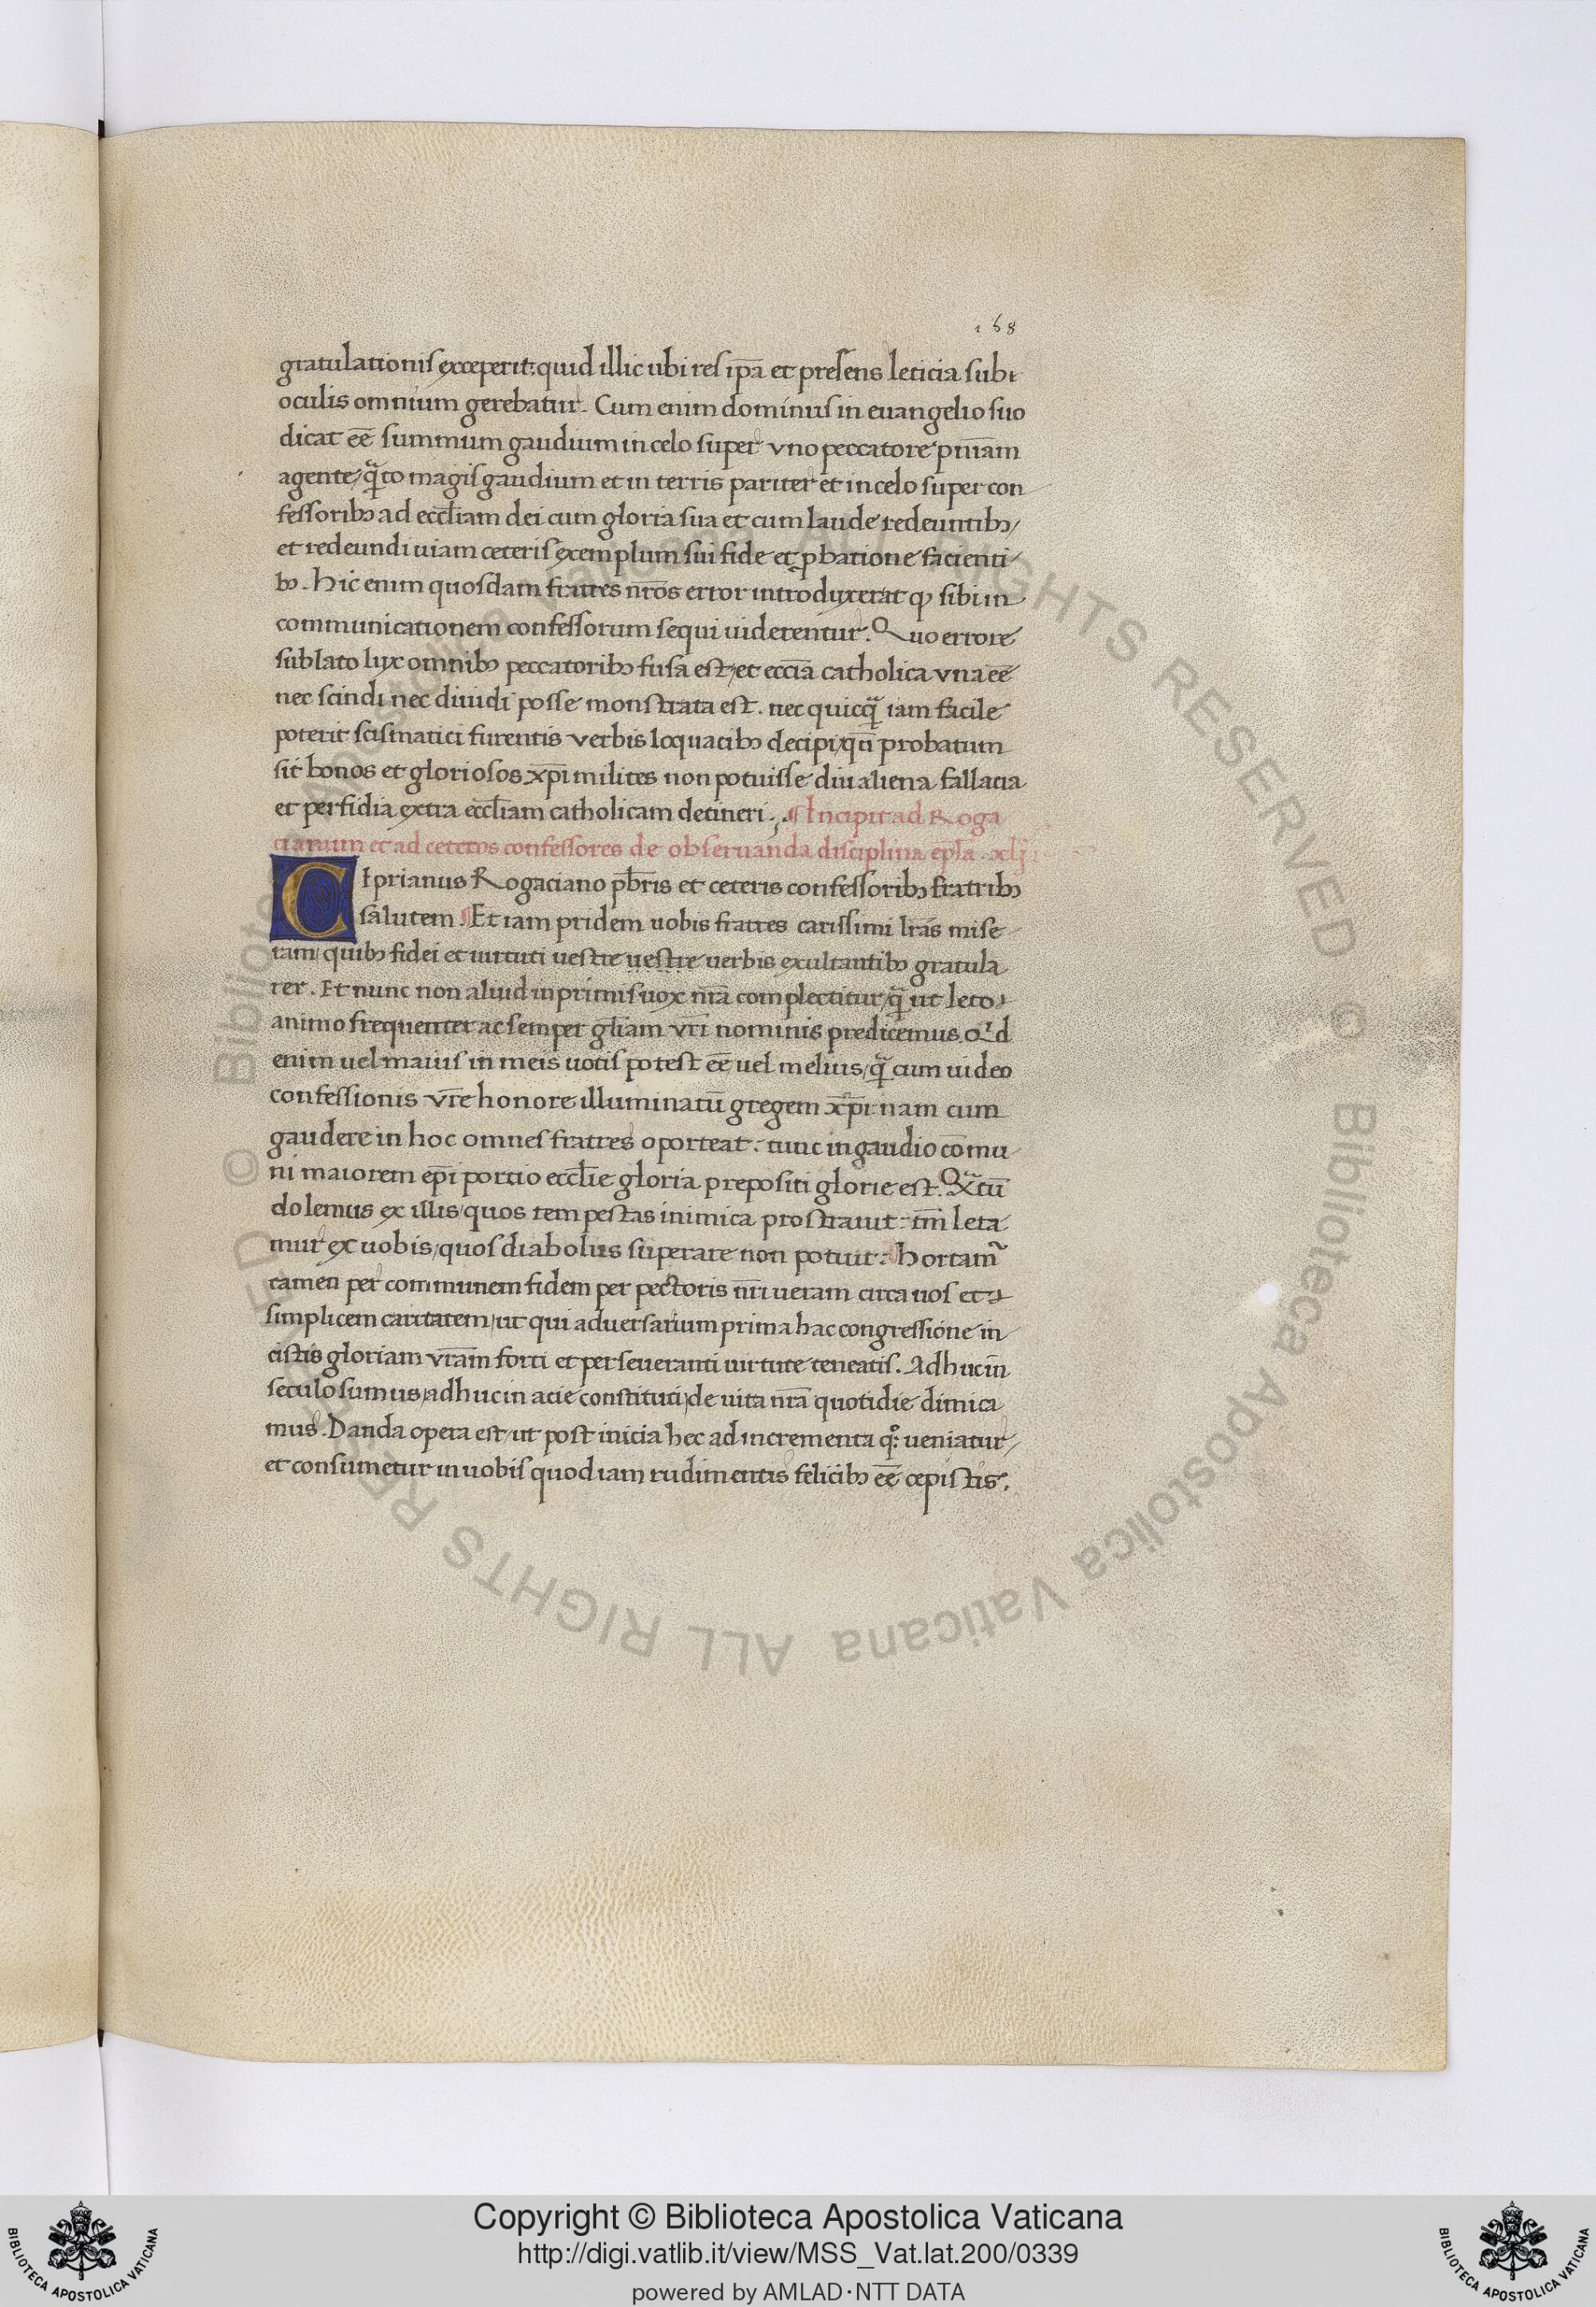 168
gratulationis exceperit: quid illic ubi res ip̄a et presens leticia sub
oculis omnium gerebatur. Cum enim dominus in euangelio suo
dicat eē summum gaudium in celo super vno peccatore pn̄iam
agente/ q̄to magis gaudium et in terris pariter et in celo super con
fessoribꝫ ad eccl̄iam dei cum gloria sua et cum laude redeuntibꝫ/
et redeundi uiam ceteris exemplum sui fide et ꝓbatione facienti
bꝫ. hic enim quosdam fratres nr̄os error introduxerat ꝙ sibi in
communicationem confessorum sequi uiderentur. Quo errore
sublato lux omnibꝫ peccatoribꝫ fusa est/ et ecc̄ia catholica vna eē
nec scindi nec diuidi posse monstrata est. nec quicq̄ iam facile
poterit scismatici furentis verbis loquacibꝫ decipi/ qn̄ probatum
sit bonos et gloriosos xp̄i milites non potuisse diu aliena fallacia
et perfidia extra eccl̄iam catholicam detineri. ¶ Incipit ad Roga
cianum et ad ceteros confessores de obseruanda disciplina ep̄la. xlj
CIprianus Rogaciano pb̄ris et ceteris confessoribꝫ fratribꝫ
salutem. ¶ Et iam pridem uobis fratres carissimi lr̄as mise
ram/ quibꝫ fidei et uirtuti uestre uestre uerbis exultantibꝫ gratula
rer. Et nunc non aliud inprimis uox nr̄a complectitur/ q̄ ut leto
animo frequenter ac semper gl̄iam vr̄i nominis predicemus. Qͥd
enim uel maius in meis uotis potest eē/ uel melius/ q̄ cum uideo
confessionis vr̄e honore illuminatū gregem xp̄i nam cum
gaudere in hoc omnes fratres oporteat: tunc in gaudio cōmu
ni maiorem ep̄i portio eccl̄ie gloria prepositi glorie est. Qᷓtū
dolemus ex illis/ quos tempestas inimica prostrauit: tm̄ leta
mur ex uobis/ quos diabolus superare non potuit: hortam̄
tamen per communem fidem per pectoris nr̄i ueram circa uos et
simplicem caritatem/ ut qui aduersarium prima hac congressione in
cistis gloriam vr̄am forti et perseueranti uirtute teneatis. Adhuc in
seculo sumus/ adhuc in acie constituti/ de uita nr̄a quotidie dimica
mus. Danda opera est/ ut post inicia hec ad incrementa qͦꝫ ueniatur/
et consumetur in uobis quod iam rudimentis felicibꝫ eē cepistis.
© Biblioteca Apostolica Vaticana ALL RIGHTS RESERVED © Biblioteca Apostolica Vaticana ALL RIGHTS RESERVED
Copyright © Biblioteca Apostolica Vaticana
http://digi.vatlib.it/view/MSS_Vat.lat.200/0339
powered by AMLAD·NTT DATA
BIBLIOTECA APOSTOLICA VATICANA
BIBLIOTECA APOSTOLICA VATICANA